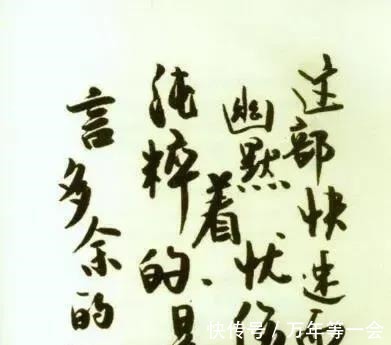 这部快速
幽默着忧
纯粹的
言多余的
快传号/万年等一会